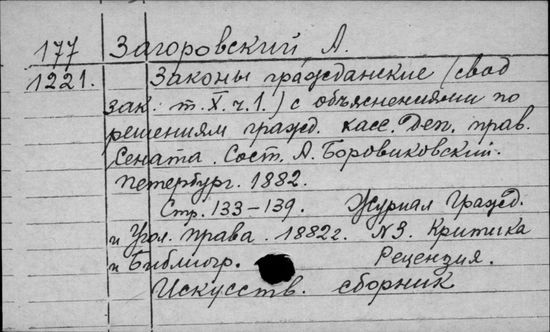 177 Загоровский А.
1221. Законы гражданские (свод
зак. т. X. ч. 1.) с объяснениями по
решениям гражд. касс. Деп. прав.
Сената. Сост. А. Боровиковский.
Петербург. 1882.
Стр. 133–139. Журнал Гражд.
и Угол. права. 1882 г. N 3. Критика
и Библиогр. Рецензия.
Искусств. сборник